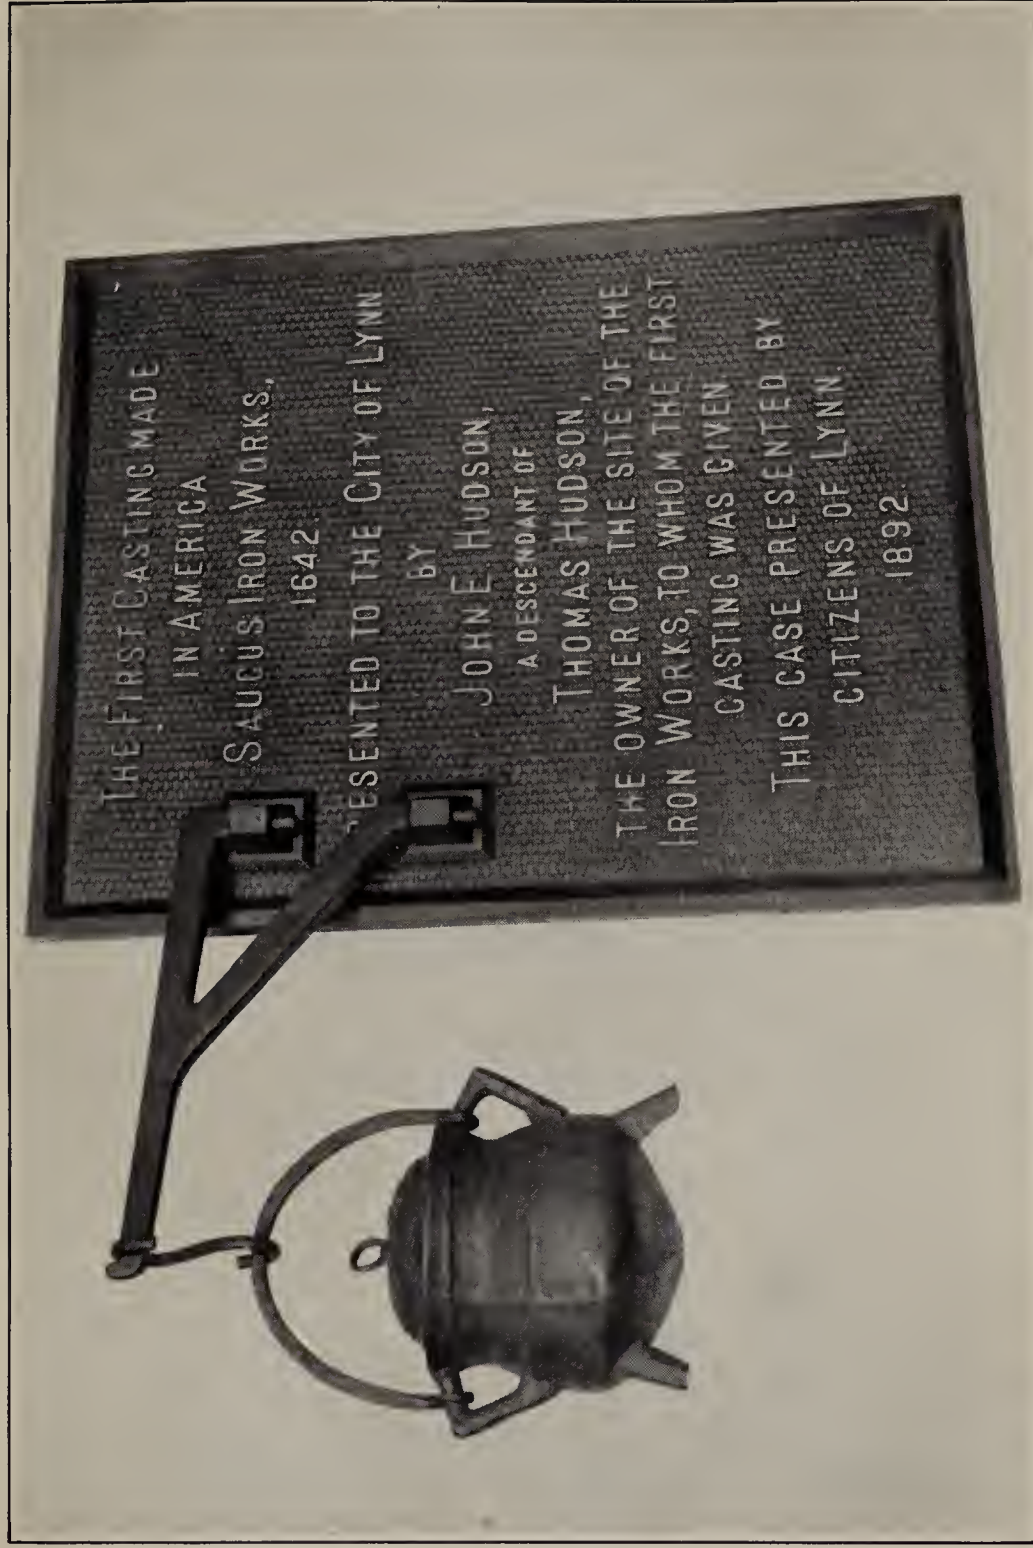 THE FIRST CASTING MADE
IN AMERICA
SAUGUS IRON WORKS,
1642.
ESENTED TO THE CITY OF LYNN
BY
JOHN E. HUDSON,
A DESCENDANT OF
THOMAS HUDSON,
THE OWNER OF THE SITE OF THE
IRON WORKS, TO WHOM THE FIRST
CASTING WAS GIVEN.
THIS CASE PRESENTED BY
CITIZENS OF LYNN.
1892.